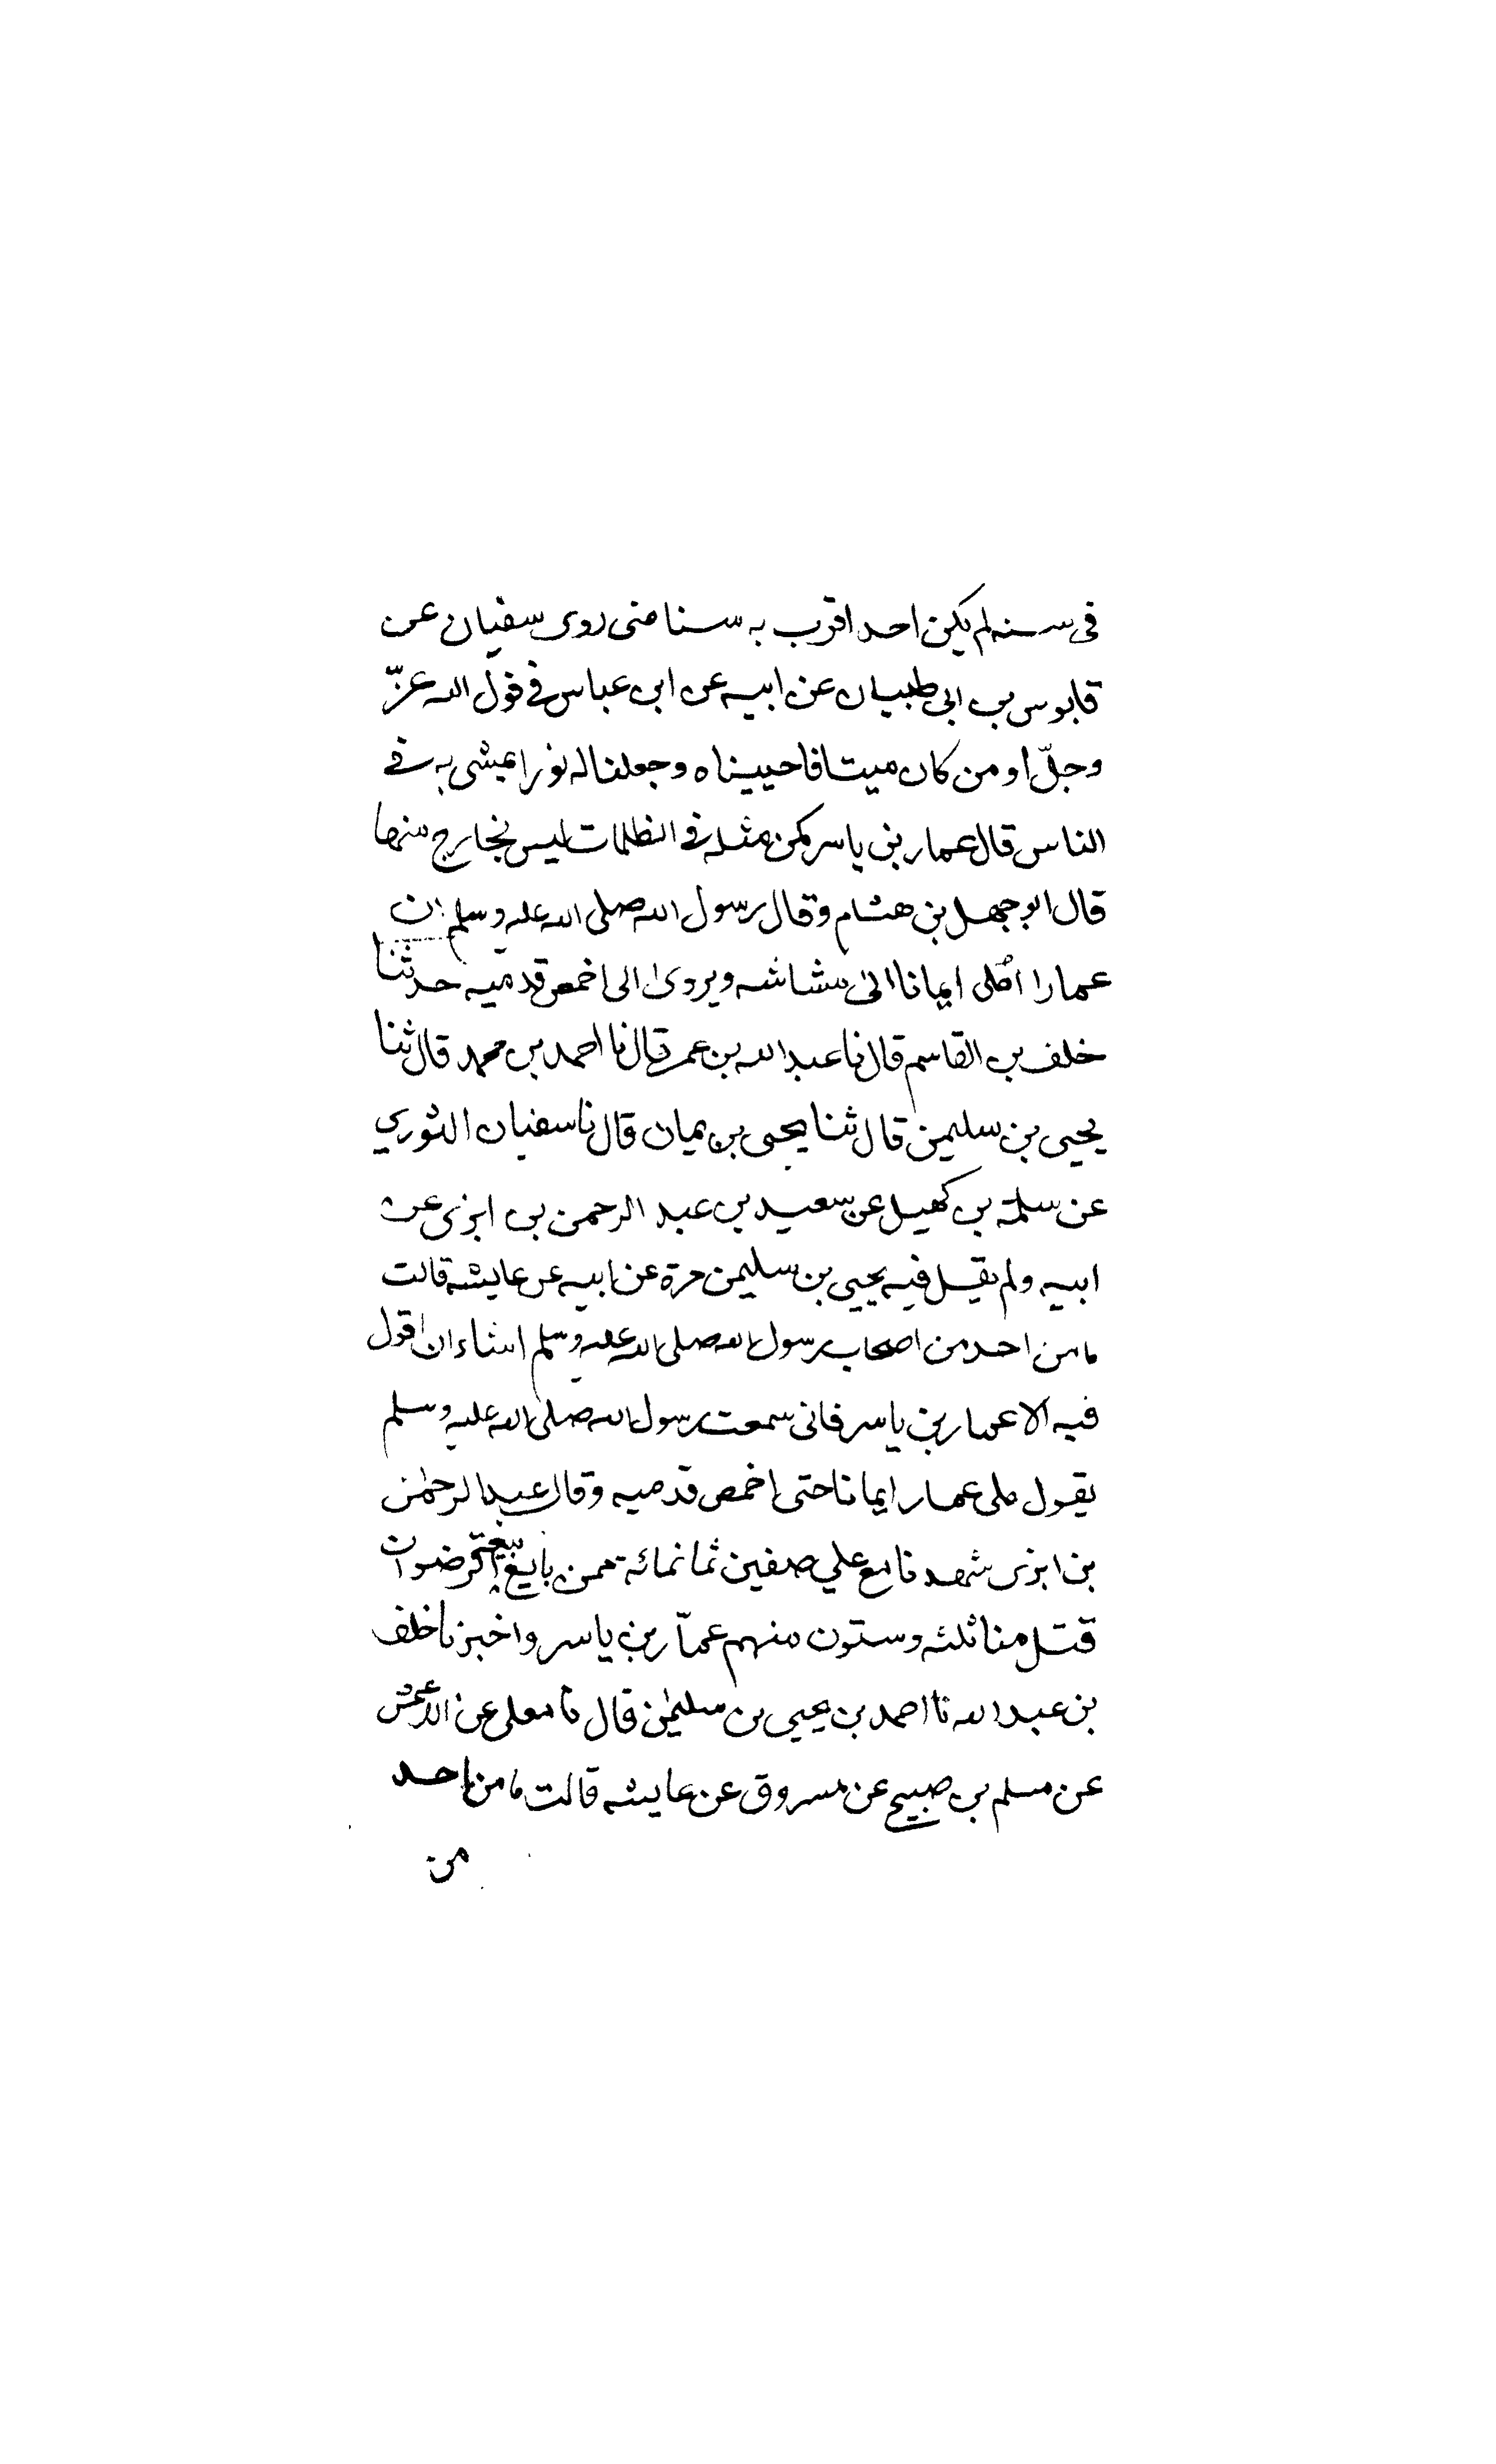 فى سنه لم يكن احد اقرب به سنا منى روى سفيان عن
قابوس بن ابى ظبيان عن ابيه عن ابن عباس فى قول الله عزّ
وجلّ او من كان ميتا فاحييناه وجعلنا له نورا يمشى به فى
الناس قال عمار بن ياسر كمن مثله فى الظلمات ليس بخارج منها
قال ابو جهل بن هشام وقال رسول الله صلى الله عليه وسلم ان
عمارا ملى ايمانا الى مشاشه ويروى الى اخمص قدميه حدثنا
خلف بن القاسم قال نا عبد الله بن عمر قال نا احمد بن محمد قال ثنا
يحيى بن سليمن قال ثنا يحيى بن يمان قال نا سفيان الثوري
عن سلمة بن كهيل عن سعيد بن عبد الرحمن بن ابزى عن
ابيه ولم يقل فيه يحيى بن سليمن مرة عن ابيه عن عايشه قالت
ما من احد من اصحاب رسول الله صلى الله عليه وسلم اشاء ان اقول
فيه الا عمار بن ياسر فانى سمعت رسول الله صلى الله عليه وسلم
يقول ملى عمار ايمانا حتى اخمص قدميه وقال عبد الرحمن
بن ابزى شهدنا مع علي صفين ثمانمائة ممن بايع بيعة الرضوان
قتل منا ثلثه وستون منهم عمّار بن ياسر واخبرنا خلف
بن عبد الله نا احمد بن يحيى بن سليمن قال نا معلى عن الاعمش
عن مسلم بن صبيح عن مسروق عن عايشه قالت ما من احد
من